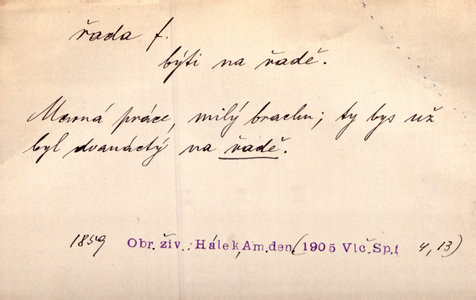 řada f.
býti na řadě.
Marná práce, milý brachu; ty bys už
byl dvanáctý na řadě.
1859 Obr. živ.: Hálek, Am. den (1905 Vlč. Sp. 4, 13)